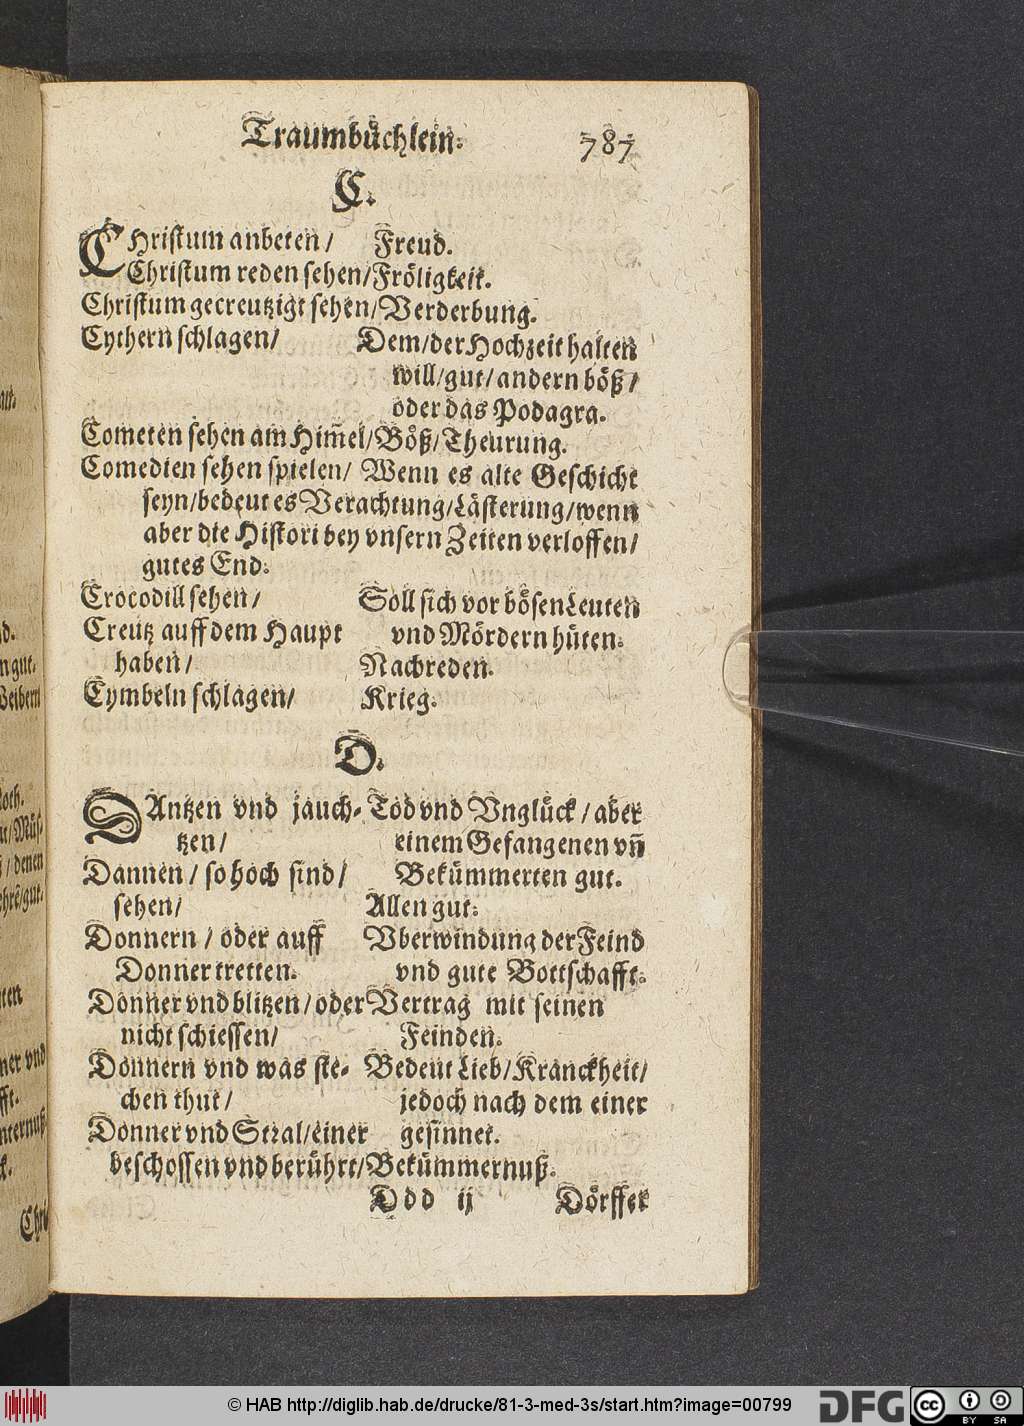 Traumbüchlein. 787
C.
CHristum anbeten / Freud.
Christum reden sehen/ Fröligkeit.
Christum gecreutzigt sehen/ Verderbung.
Cythern schlagen/ Dem/ der Hochzeit halten
will/ gut/ andern böß/
oder das Podagra.
Cometen sehen am Him̃el/ Böß/ Theurung.
Comedien sehen spielen/ Wenn es alte Geschicht
seyn/ bedeut es Verachtung/ Lästerung/ wenn
aber die Histori bey vnsern Zeiten verloffen/
gutes End.
Crocodill sehen/ Soll sich vor bösen Leuten
Creutz auff dem Haupt vnd Mördern hüten.
haben/ Nachreden.
Cymbeln schlagen/ Krieg.
D.
DAntzen vnd jauch- Tod vnd Vnglück/ aber
tzen/ einem Gefangenen vñ
Dannen/ so hoch sind/ Bekümmerten gut.
sehen/ Allen gut.
Donnern/ oder auff Vberwindung der Feind
Donner tretten. vnd gute Bottschafft.
Donner vnd blitzen/ oder Vertrag mit seinen
nicht schiessen/ Feinden.
Donnern vnd was ste- Bedeut Lieb/ Kranckheit/
chen thut/ jedoch nach dem einer
Donner vnd Stral/ einer gesinnet.
beschossen vnd berührt/ Bekümmernuß.
Ddd ij Dörffer
© HAB http://diglib.hab.de/drucke/81-3-med-3s/start.htm?image=00799
DFG
cc
BY SA